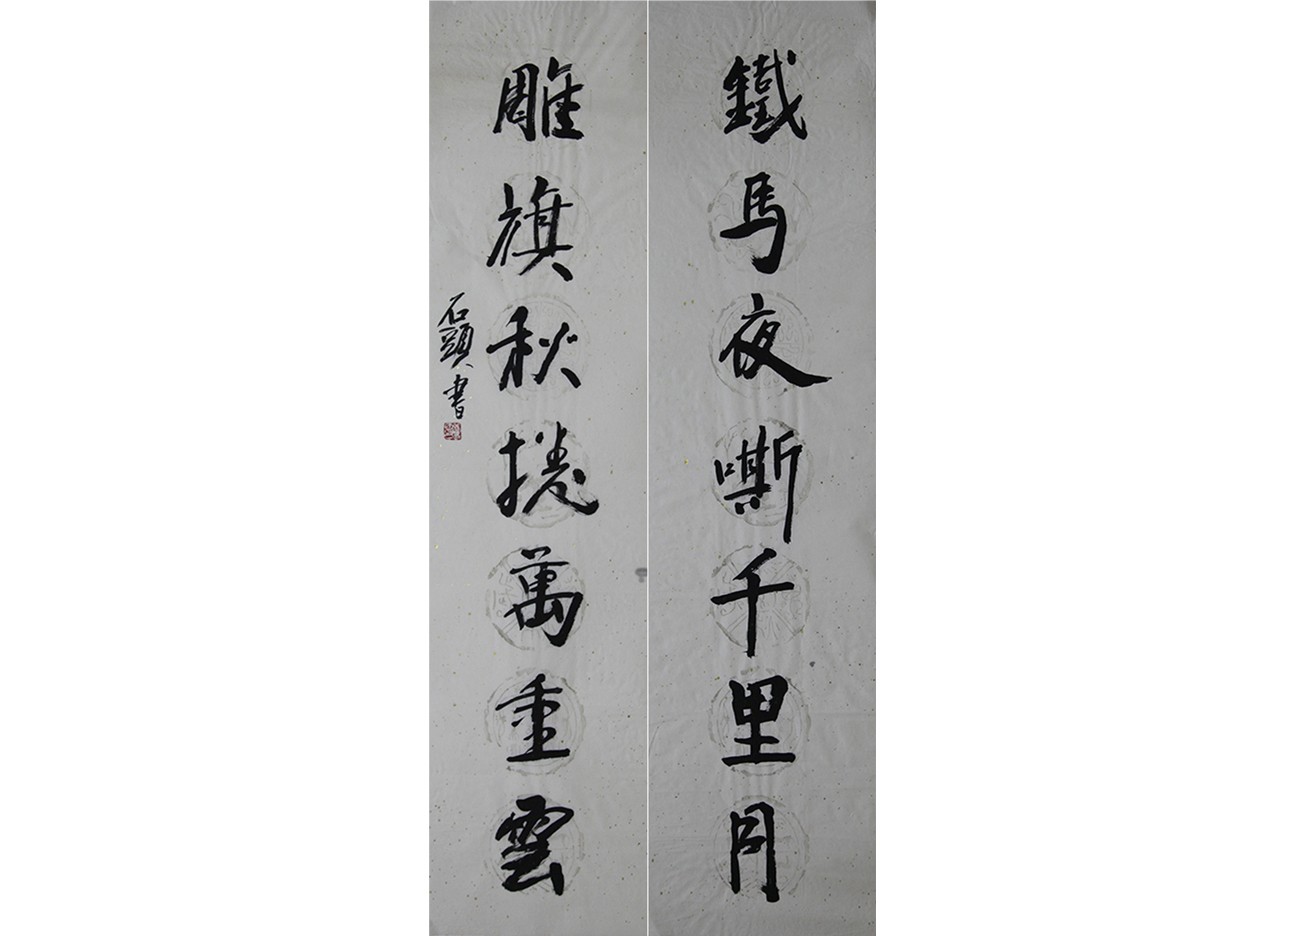 鐵馬夜嘶千里月
雕旗秋捲萬重雲
石頭書